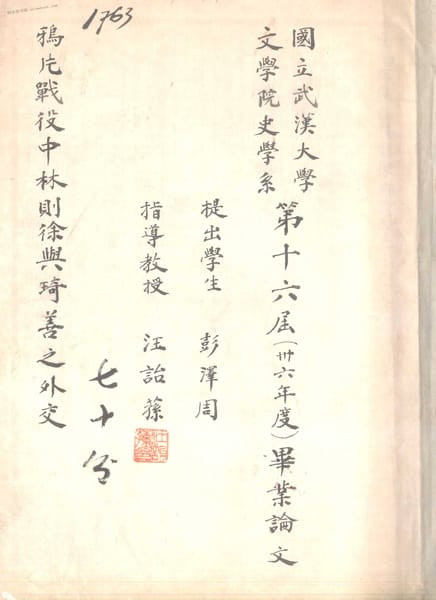 國立武漢大學
文學院史學系
第十六屆(卅六年度)畢業論文
提出學生 彭澤周
指導教授 汪詒蓀
七十分
1763
鴉片戰役中林則徐與琦善之外交